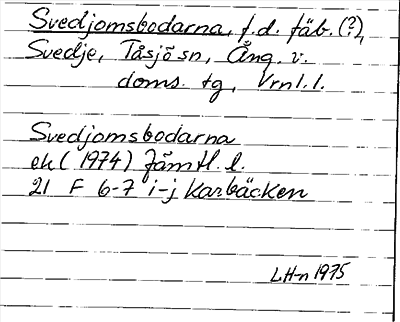 Svedjomsbodarna, f.d. fäb. (?),
Svedje, Tåsjö sn, Ång. v.
doms. tg, Vrnl. l.
Svedjomsbodarna
ek (1974) Jämtl. l.
21 F 6-7 i-j Karbäcken
LH-n 1975